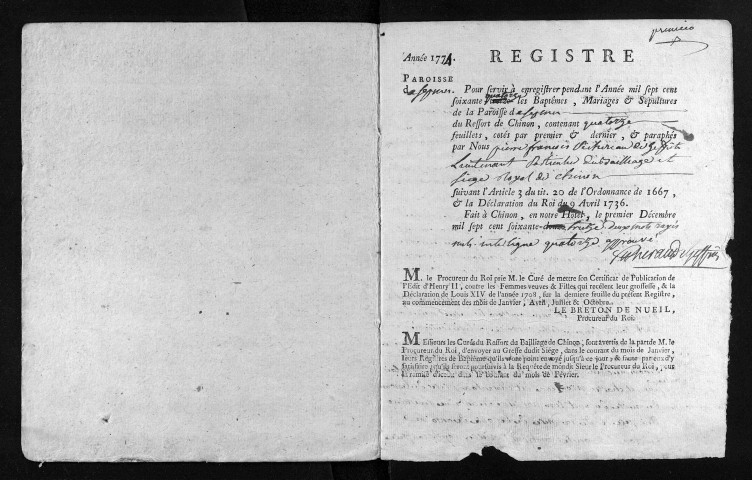 premier
Année 1774. REGISTRE
PAROISSE
d Pour servir à enregistrer pendant l'Année mil sept cent
soixante quatorze les Baptêmes, Mariages & Sépultures
de la Paroisse d
du Ressort de Chinon, contenant quatorze
feuillets, cotés par premier & dernier, & paraphés
par Nous pierre françois
Lieutenant Particulier du bailliage et
siege Royal de chinon
suivant l'Article 3 du tit. 20 de l'Ordonnance de 1667,
& la Déclaration du Roi du 9 Avril 1736.
Fait à Chinon, en notre Hotel, le premier Décembre
mil sept cent soixante treize deux mots rayés
nuls interligne quatorze approuvé
M. le Procureur du Roi prie M. le Curé de mettre son Certificat de Publication de
l'Edit d'Henry II, contre les Femmes veuves & Filles qui recélent leur grossesse, & la
Déclaration de Louis XIV de l'année 1708, sur la derniere feuille du présent Registre,
au commencement des mois de Janvier, Avril, Juillet & Octobre.
LE BRETON DE NUEIL,
Procureur du Roi.
Messieurs les Curés du Ressort du Bailliage de Chinon, sont avertis de la part de M. le
Procureur du Roi, d'envoyer au Greffe dudit Siége, dans le courant du mois de Janvier,
leurs Régistres de Baptême qu'ils n'ont point envoyé jusqu'à ce jour; & faute par eux d'y
satisfaire, qu'ils seront poursuivis à la Requête de mondit Sieur le Procureur du Roi, pour
la remise d'iceux dans le courant du mois de Février.